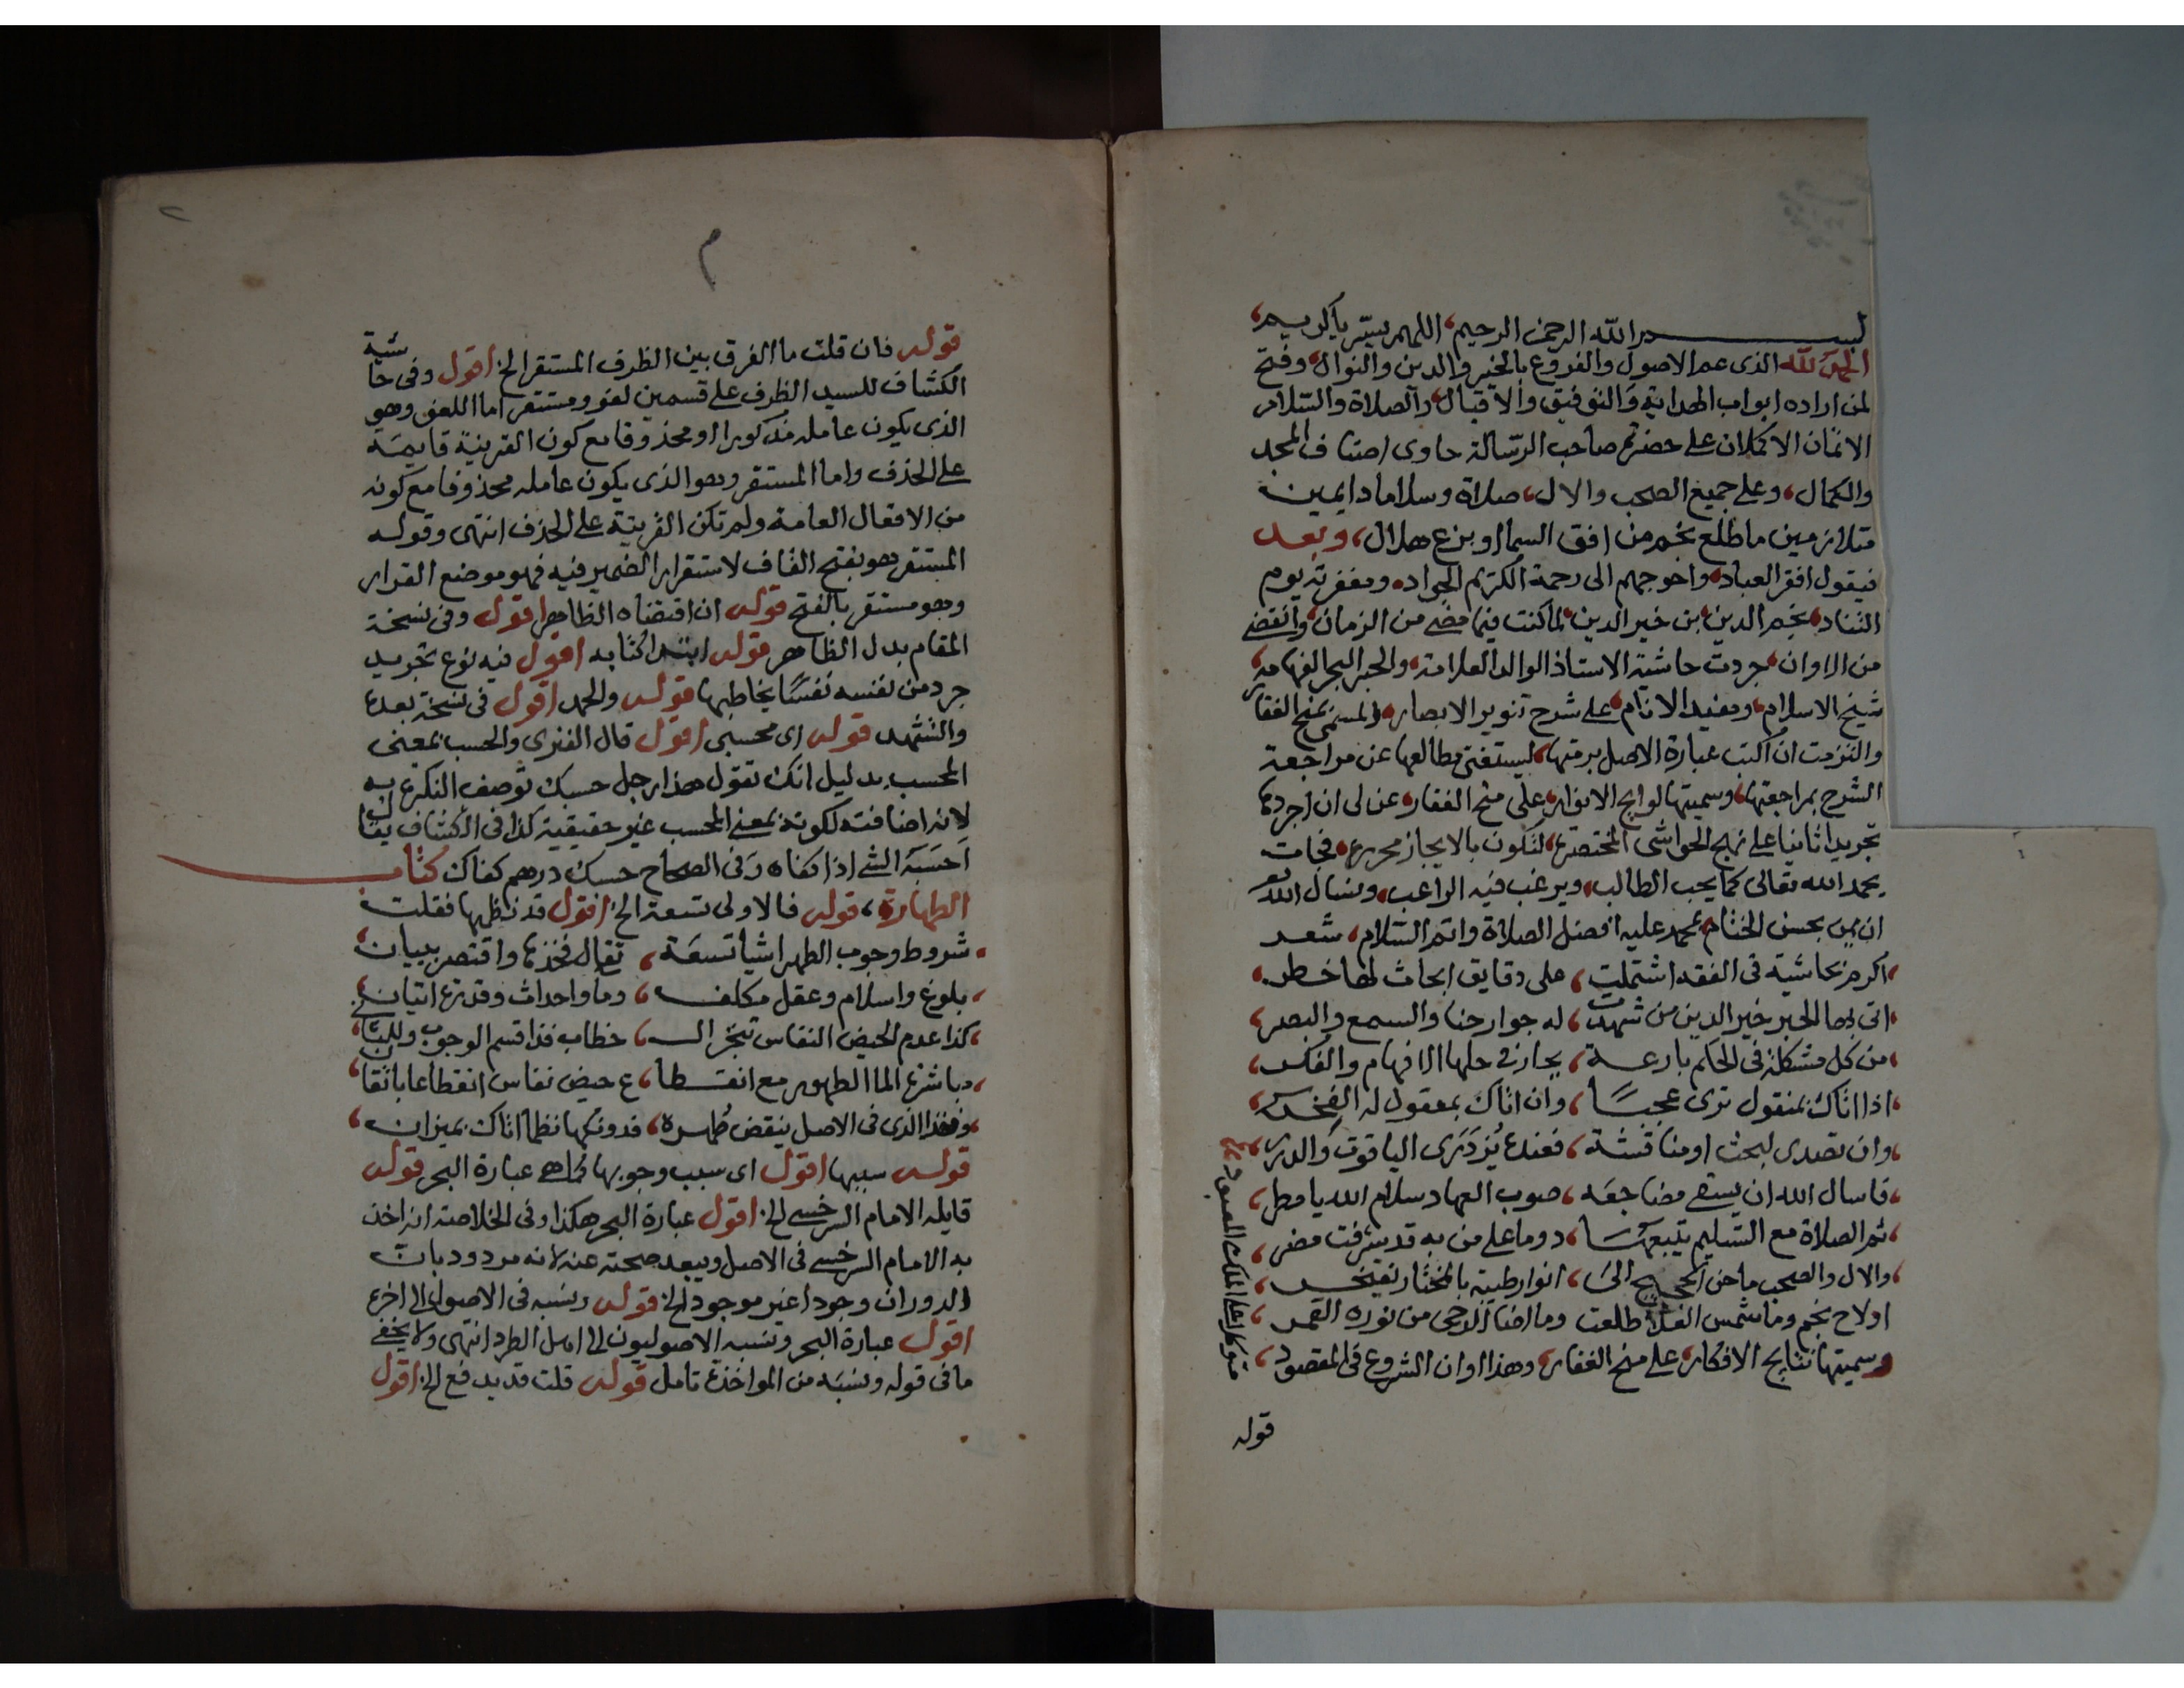 بسم الله الرحمن الرحيم، اللهم يسر يا كريم،
الحمد لله الذى عم الاصول والفروع بالخير والدين والنوال، وفتح
لمن اراده ابواب الهداية والتوفيق والاقبال، والصلاة والسلام
الاتمان الاكملان على حضرتم صاحب الرسالة حاوى اصناف المجد
والكمال، وعلى جميع الصحب والال، صلاة وسلاما دايمين
متلازمين ما طلع نجم من افق السما او بزغ هلال، وبعد
فيقول افقر العباد، واحوجهم الى رحمة الكريم الجواد، ومغفرته يوم
التناد، نجم الدين بن خير الدين، لما كنت فيما مضى من الزمان، وانقضى
من الاوان، جردت حاشية الاستاذ الوالد العلامة، والحبر البحر الفهامه،
شيخ الاسلام، ومفيد الانام، على شرح تنوير الابصار، المسمى بمنح الغفار
والتزمت ان اكتب عبارة الاصل برمتها، ليستغنى مطالعها عن مراجعة
الشرح بمراجعتها، وسميتها لوايح الانوار، على منح الغفار، عن لى ان اجردها
تجريدا ثانيا على نهج الحواشى المختصرة، لتكون بالايجاز محررة، فجات
بحمد الله تعالى كما يحب الطالب، ويرغب فيه الراغب، ونسال الله
ان يمن بحسن الختام، بمحمد عليه افضل الصلاة واتم السلام، شعر
اكرم بحاشية فى الفقه اشتملت، على دقايق ابحاث لها خطر،
اتى بها الحبر خير الدين من شهدت، له جوارحنا والسمع والبصر،
من كل مشكلة فى الحكم بارعة، يحار فى حلها الافهام والفكر،
اذا اتاك بمنقول ترى عجبا، وان اتاك بمعقول له
وان تصدى لبحث او مناقشة، فعنده يزدرى الياقوت والدرر،
فاسال الله ان يسقى مضاجعه، صوب العهاد سلام الله يا مطر،
ثم الصلاة مع التسليم يتبعها، دوما على من به قد شرفت مضر،
والال والصحب ما حن الحجيج الى، انوار طيبة بالمختار تفتخر،
او لاح نجم وما شمس الفلا طلعت وما اضا الدجى من نوره القمر،
وسميتها نتايج الافكار، على منح الغفار، وهذا اوان الشروع فى المقصود،
متوكلا على الملك المعبود
قوله
٢
م
قوله فان قلت ما الفرق بين الظرف المستقر الخ اقول وفى حاشية
الكشاف للسيد الظرف على قسمين لغو ومستقر اما اللغو وهو
الذى يكون عامله مذكورا او محذوفا مع كون القرينة قايمة
على الحذف واما المستقر وهو الذى يكون عامله محذوفا مع كونه
من الافعال العامة ولم تكن القرينة على الحذف انتهى وقوله
المستقر هو بفتح القاف لاستقرار الضمير فيه فهو موضع القرار
وهو مستقر بالفتح قوله ان اقتضاه الظاهر اقول وفى نسخة
المقام بدل الظاهر قوله ابتدا كتابه اقول فيه نوع تجريد
جرد من نفسه نفسا يخاطبها قوله والحمد اقول فى نسخة بعده
والتشهد قوله اى محسبى اقول قال الفنرى والحسب بمعنى
المحسب بدليل انك تقول هذا رجل حسبك توصف النكرة به
لانه اضافته لكونه بمعنى المحسب غير حقيقية كذا فى الكشاف يقال
احسبه الشى اذا كفاه وفى الصحاح حسبك درهم كفاك كتاب
الطهارة، قوله فالاولى تسعة الخ اقول قد نظمها فقلت
شروط وجوب الطهر اشيا تسعة، تعال فخذها واقتصر ببيان،
بلوغ واسلام وعقل مكلف، وما واحداث وقدرة اتيان،
كذا عدم الحيض النفاس تنجز الـ، خطاب فذا قسم الوجوب وللثانى،
مباشرة الما الطهور مع انقطا، ع حيض نفاس انقطاعا باتقان،
وفقد الذى فى الاصل ينقض طهره، فدونكها نظما اتاك بميزان،
قوله سببها اقول اى سبب وجوبها كما هى عبارة البحر قوله
قايله الامام السرخسى الخ اقول عبارة البحر هكذا وفى الخلاصة انه اخذ
به الامام السرخسى فى الاصل ويبعد صحته عنه لانه مردود بان
الدوران وجودا غير موجود الخ قوله ونسبه فى الاصول الى اخره
اقول عبارة البحر ونسبه الاصوليون الى اهل الطرد انتهى ولا يخفى
ما فى قوله ونسبه من المواخذة تامل قوله قلت قد يدفع الخ اقول